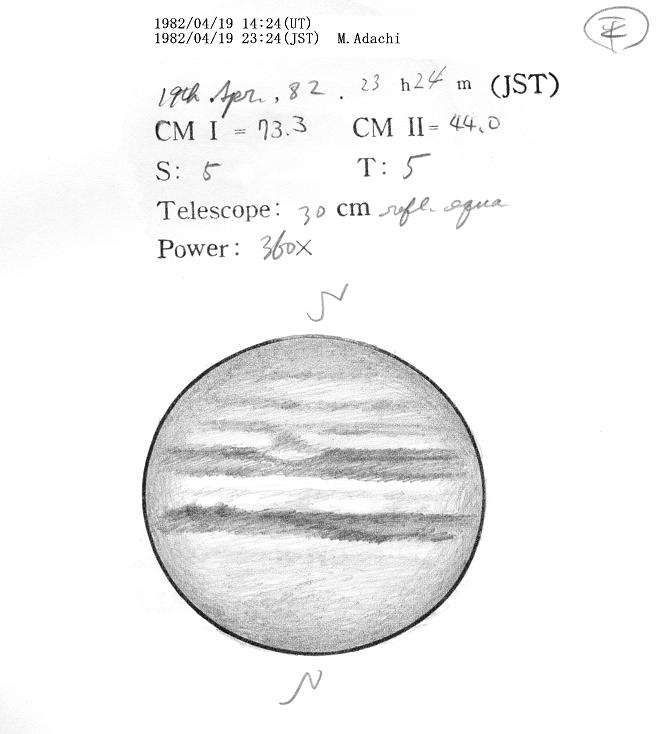 1982/04/19 14:24(UT)
1982/04/19 23:24(JST) M.Adachi
19th Apr., 82. 23 h 24 m (JST)
CM I = 73.3 CM II= 44.0
S: 5 T: 5
Telescope: 30 cm refl. equa
Power: 360X
N